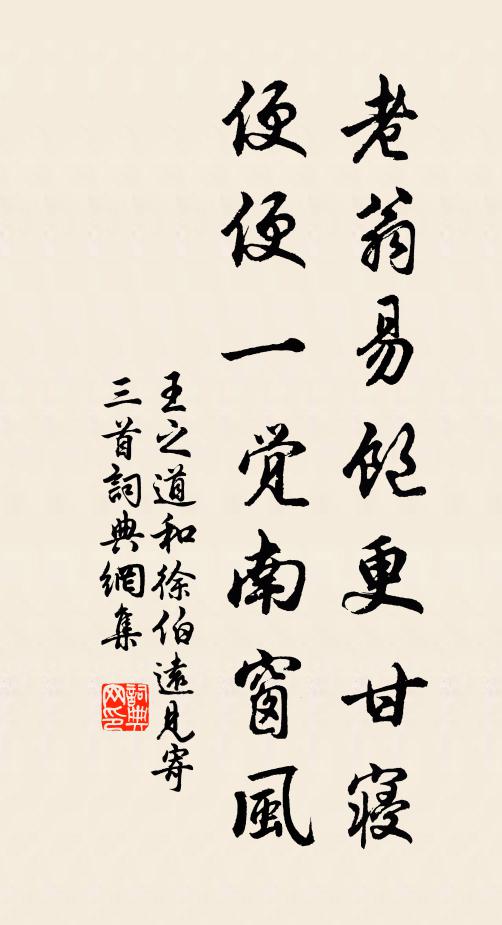 老翁易飽更甘寝
便便一覚南窗風
王之道和徐伯遠見寄
三首詞典網集
詞典網印